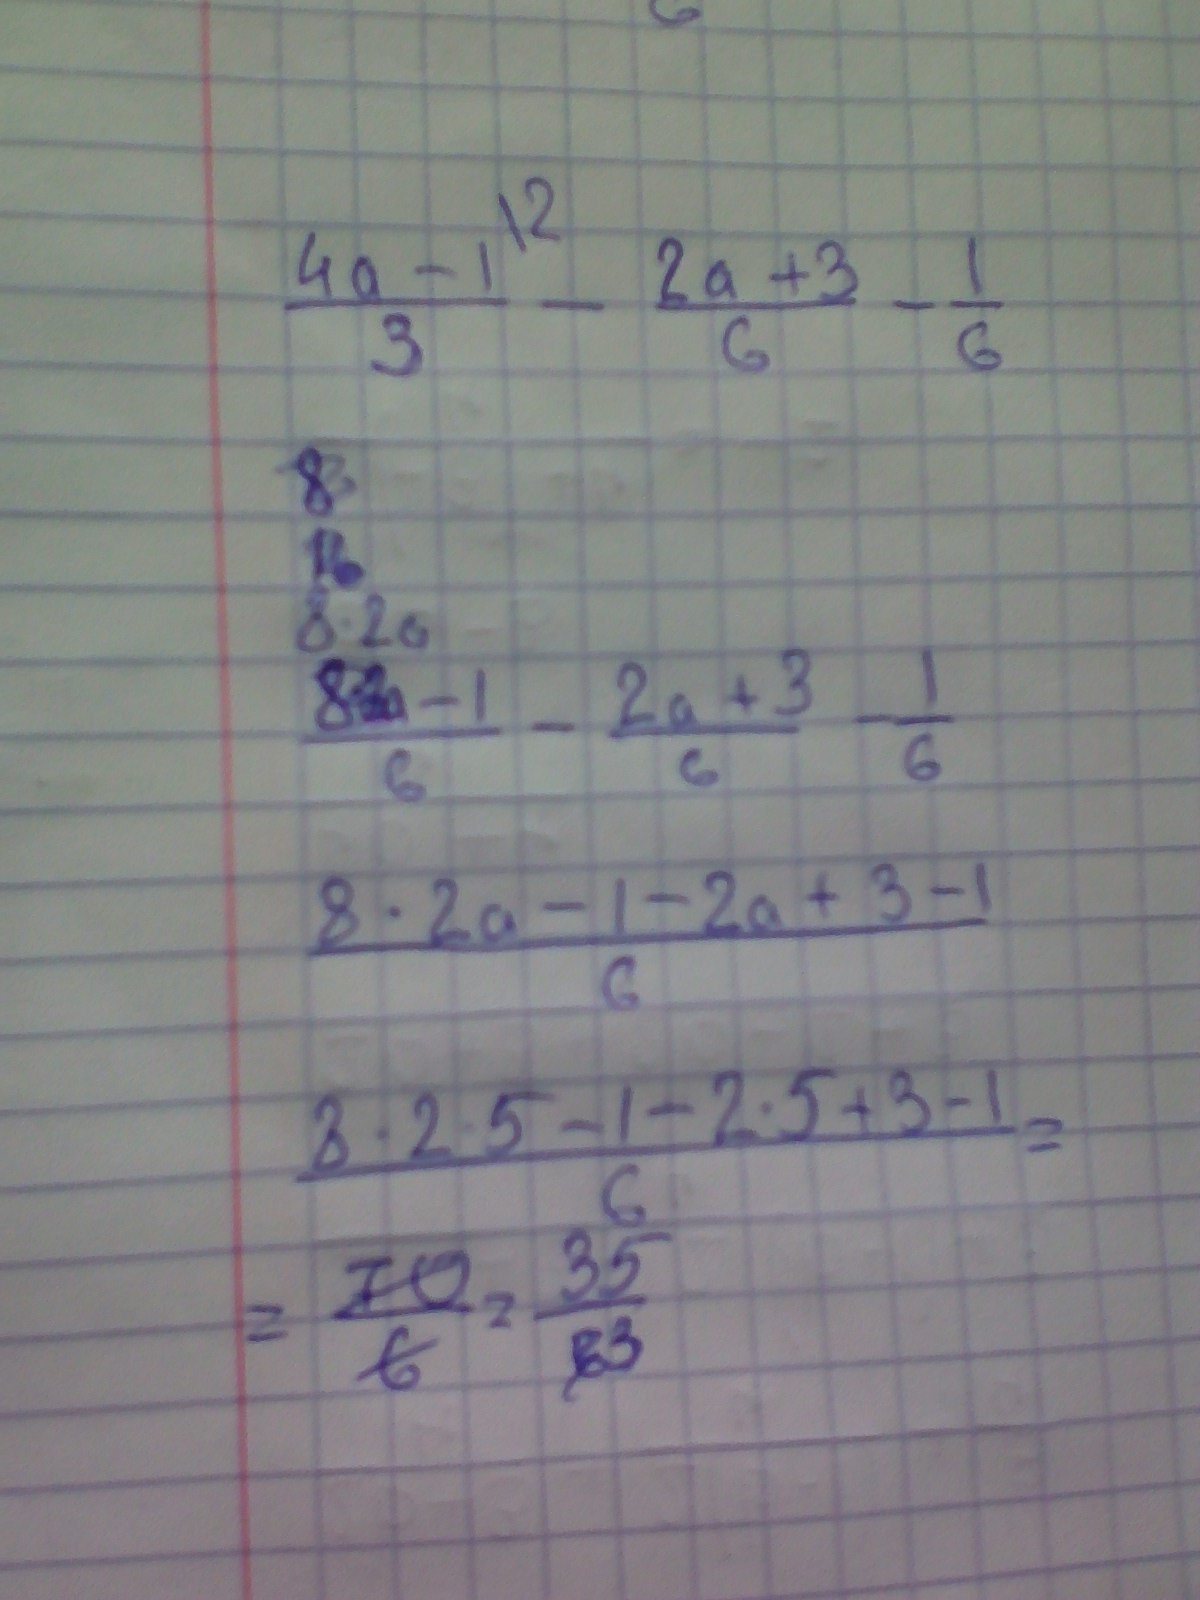 6
(4a - 1)/3 \2 - (2a + 3)/6 - 1/6
8
16
8·2a
(8·2a - 1)/6 - (2a + 3)/6 - 1/6
(8·2a - 1 - 2a + 3 - 1)/6
(8·2·5 - 1 - 2·5 + 3 - 1)/6 =
= 70/6 = 35/3